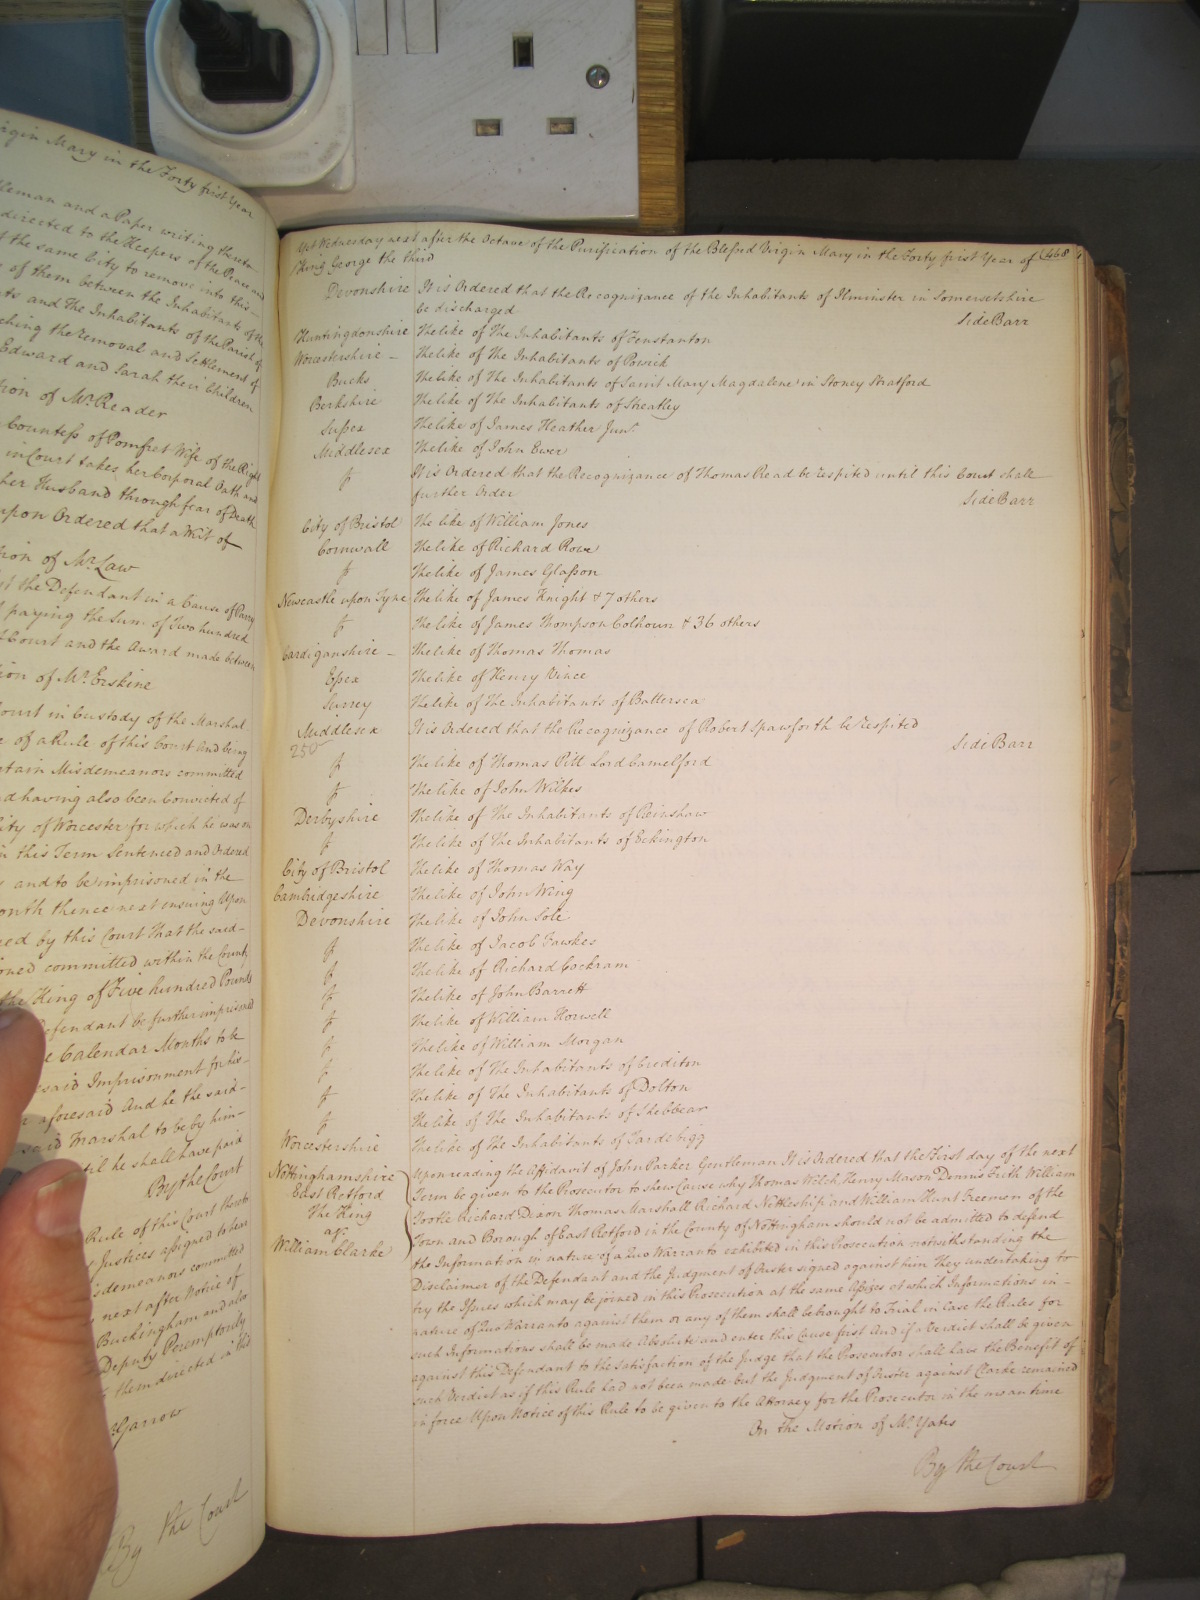 irgin Mary in the Forty first Year
tleman and a Paper writing thereto
directed to the Keepers of the Peace and
the same City to remove into this
of them between the Inhabitants of the
nts and The Inhabitants of the Parish of
ching the removal and Settlement of
Edward and Sarah their Children
tion of Mr. Reader
Countess of Pomfret Wife of the Right
in Court takes her Corporal Oath and
her Husband through fear of Death
upon Ordered that a Writ of
tion of Mr. Law
the Defendant in a Cause of Parry
paying the Sum of Two hundred
Court and the Award made between
ion of Mr. Erskine
ourt in Custody of the Marshal
of a Rule of this Court and being
rtain Misdemeanors committed
nd having also been Convicted of
ity of Worcester for which he was on
in this Term Sentenced and Ordered
and to be imprisoned in the
onth thence next ensuing Upon
ed by this Court That the said
oned committed within the County
the King of Five hundred Pounds
Defendant be further imprisoned
Calendar Months to be
said Imprisonment for his
aforesaid And he the said
said Marshal to be by him
til he shall have paid
By the Court
Rule of this Court
Justices assigned to hear
isdemeanors committed
next after Notice of
Buckingham and also
Deputy Peremptorily
them directed in this
Garrow
By the Court
Yet Wednesday next after the Octave of the Purification of the Blessed Virgin Mary in the Forty first Year of (468
King George the third
Devonshire It is Ordered that the Recognizance of the Inhabitants of Ilminster in Somersetshire
be discharged Side Barr
Huntingdonshire The like of The Inhabitants of Fenstanton
Worcestershire - The like of The Inhabitants of Powick
Bucks The like of The Inhabitants of Saint Mary Magdalene in Stoney Stratford
Berkshire The like of The Inhabitants of Streatley
Sussex The like of James Heather Junr.
Middlesex The like of John Ewer
It is Ordered that the Recognizance of Thomas Read be respited until this Court shall
further Order Side Barr
City of Bristol The like of William Jones
Cornwall The like of Richard Rowe
The like of James Glasson
Newcastle upon Tyne The like of James Knight & 7 others
The like of James Thompson Colhoun & 36 others
Cardiganshire - The like of Thomas Thomas
Essex The like of Henry Vince
Surrey The like of The Inhabitants of Battersea
Middlesex It is Ordered that the Recognizance of Robert Spawforth be respited
250 Side Barr
The like of Thomas Pitt Lord Camelford
The like of John Wilkes
Derbyshire The like of The Inhabitants of Reinshaw
The like of The Inhabitants of Eckington
City of Bristol The like of Thomas Way
Cambridgeshire The like of John Wing
Devonshire The like of John Sole
The like of Jacob Fawkes
The like of Richard Cockram
The like of John Barrett
The like of William Horwell
The like of William Morgan
The like of The Inhabitants of Crediton
The like of The Inhabitants of Dolton
The like of The Inhabitants of Shebbear
Worcestershire The like of The Inhabitants of Tardebigg
Nottinghamshire
East Retford
The King
agt.
William Clarke
Upon reading the Affidavit of John Parker Gentleman It is Ordered that the First day of the next
Term be given to the Prosecutor to shew Cause why Thomas Welch Henry Mason Dennis Frith William
Tootle Richard Dixon Thomas Marshall Richard Nettleship and William Hunt Freemen of the
Town and Borough of East Retford in the County of Nottingham should not be admitted to defend
the Information in nature of a Quo Warranto exhibited in this Prosecution notwithstanding the
Disclaimer of the Defendant and the Judgment of Ouster signed against him they undertaking to
try the Issues which may be joined in this Prosecution at the same Assizes at which Informations in
nature of Quo Warranto against them or any of them shall be brought to Trial in Case the Rules for
such Informations shall be made Absolute and enter this Cause first And if a Verdict shall be given
against this Defendant to the Satisfaction of the Judge that the Prosecutor shall have the Benefit of
such Verdict as if this Rule had not been made but the Judgment of Ouster against Clarke remained
in force Upon Notice of this Rule to be given to the Attorney for the Prosecutor in the mean time
On the Motion of Mr. Yates
By the Court